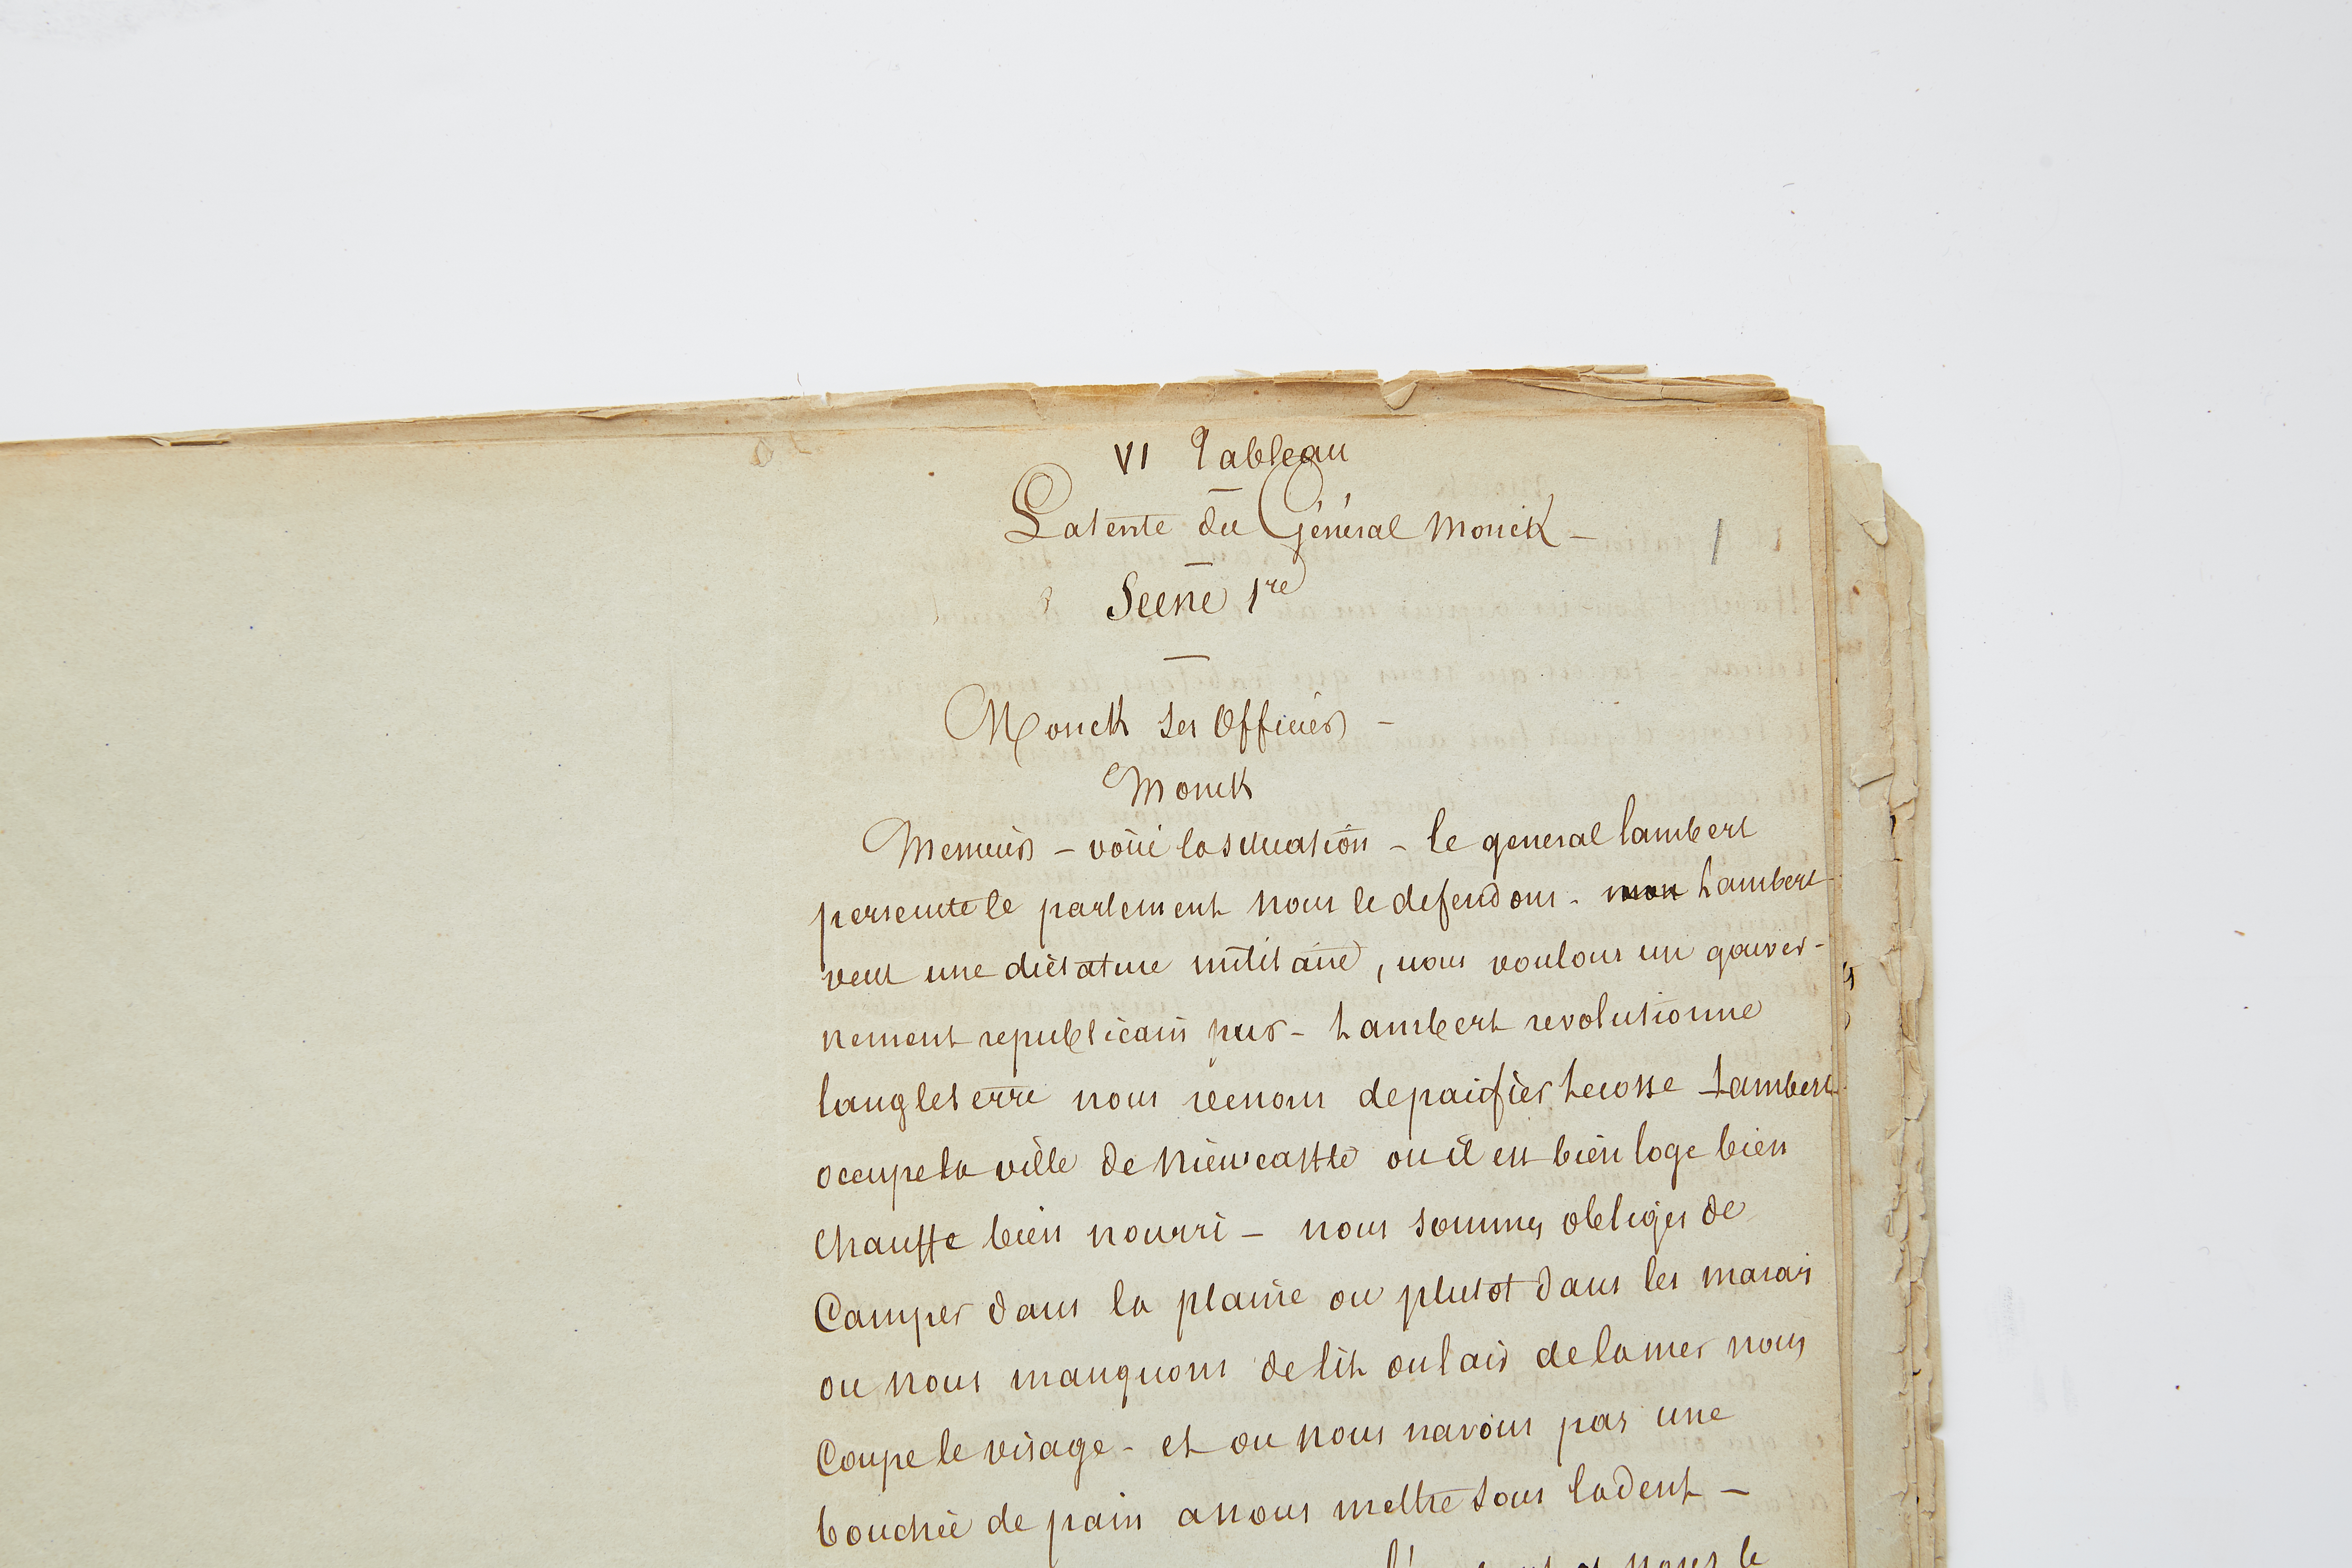 VI Tableau
La tente du Général Monck –
1
Scene 1re
Monck ses officiers –
Monck
Messieurs – voici la situation – le general lambert
persecute le parlement nous le defendons – mon Lambert
veut une dictature militaire, nous voulons un gouver-
nement republicain pur – Lambert revolutionne
langleterre nous venons de pacifier Lecosse Lambert
occupe la ville de Niewcastle ou il est bien loge bien
Chauffe bien nourri – nous sommes obliges de
Camper dans la plaine ou plutot dans les marais
ou nous manquons de lit ou lair de la mer nous
Coupe le visage – et ou nous navons pas une
bouchée de pain a nous mettre sous la dent –
nous le